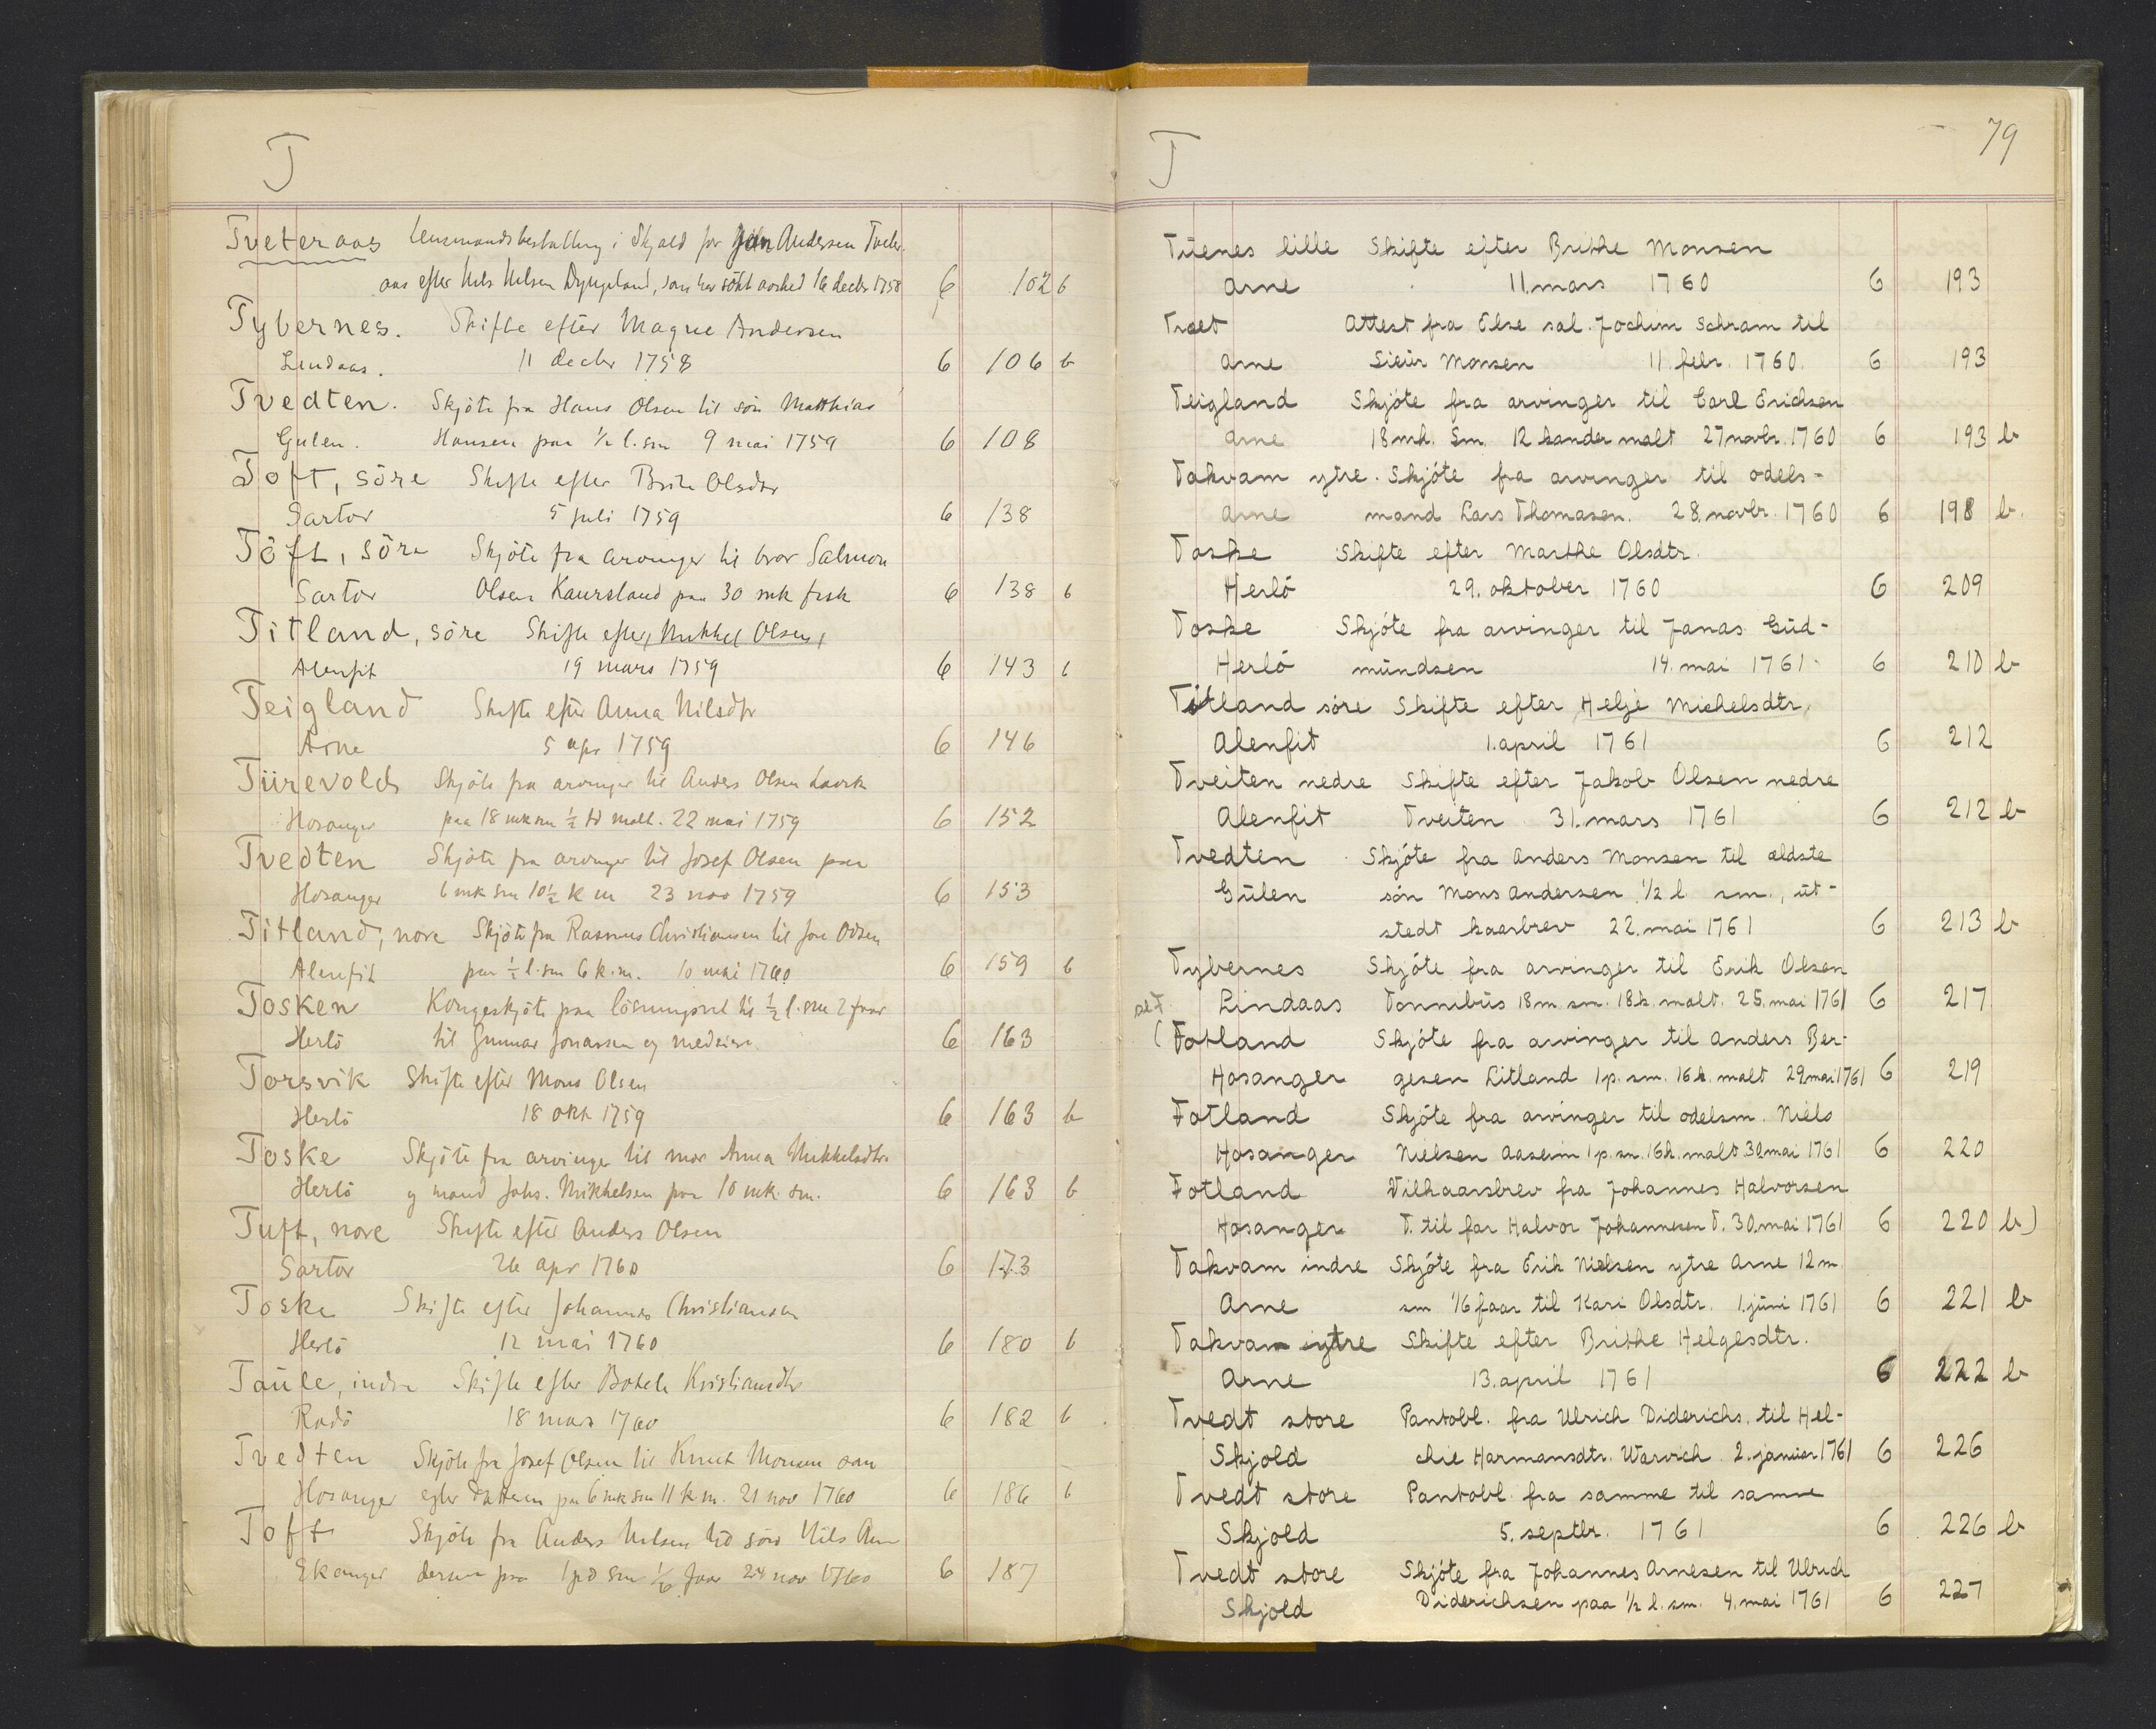 T
Tveteraas Lensmandsbestalling i Skjold for John Andersen Tveter-
aas efter Nels Nelsen, som har sökt avsked 16 decbr 1758 6 102 b
Tybernes. Skifte efter Magne Andersen
Lindaas. 11 decbr 1758 6 106 b
Tvedten. Skjöte fra Hans Olsen til sön Matthias
Gulen. Hansen paa 1/2 l. sm 9 mai 1759 6 108
Toft, söre Skifte efter Brite Olsdtr
Sartor 5 juli 1759 6 138
Töft, söre Skjöte fra arvinger til bror Salmon
Sartor Olsen Kaursland paa 30 mk fisk 6 138 b
Titland, söre Skifte efter Mikkel Olsen
Alenfit 19 mars 1759 6 143 b
Teigland Skifte efter Anna Nilsdtr
Arne 5 apr 1759 6 146
Türevolds Skjöte fra arvinger til Anders Olsen
Hosanger paa 18 mk sm 1/2 td malt. 22 mai 1759 6 152
Tvedten Skjöte fra arvinger til Josef Olsen paa
Hosanger 6 mk sm 10 1/2 k m 23 nov 1759 6 153
Titland, nore Skjöte fra Rasmus Christiansen til Jone Odsen
Alenfit paa 1/2 l. sm 6 k. m. 10 mai 1760 6 159 b
Tosken Kongeskjöte paa lösningsret til 1/2 l. sm 2 faar
Herlö til Gunnar Jonassen og medeiere 6 163
Torsvik Skifte efter Mons Olsen
Herlö 18 okt 1759 6 163 b
Toske Skjöte fra arvinger til mor Anna Mikkelsdtr
Herlö og mand Johs. Mikkelsen paa 10 mk. sm. 6 163 b
Tuft, nore Skifte efter Anders Olsen
Sartor 26 apr 1760 6 173
Toske Skifte efter Johannes Christiansen
Herlö 12 mai 1760 6 180 b
Taüle, indre Skifte efter Botele Kristiansdtr
Radö 18 mars 1760 6 182 b
Tvedten Skjöte fra Josef Olsen til Knut Monsen
Hosanger paa 6 mk sm 11 k m. 21 nov 1760 6 186 b
Toft Skjöte fra Anders Nelsen til sön Nils An-
Ekanger dersen paa 1 pd sm 1/6 faar 24 nov 1760 6 187
T 79
Tüenes lille Skifte efter Brithe Monsen
Arne 11. mars 1760 6 193
Tvaet Attest fra Else sal. Jochim Schram til
Arne Sieür Monsen 11. febr. 1760. 6 193
Teigland Skjöte fra arvinger til Carl Erichsen
Arne 18 mk. Sm. 12 kander malt 27 novbr. 1760 6 193 b
Takvam ytre. Skjöte fra arvinger til odels-
Arne mand Lars Thomasen. 28. novbr. 1760 6 198 b.
Toske Skifte efter Marthe Olsdtr.
Herlö 29. oktober 1760 6 209
Toske Skjöte fra arvinger til Janas Güd-
Herlö mündsen 14. mai 1761. 6 210 b
Titland söre Skifte efter Helje Michelsdtr.
Alenfit 1. april 1761 6 212
Tveiten nedre Skifte efter Jakob Olsen nedre
Alenfit Tveiten 31. mars 1761 6 212 b
Tvedten Skjöte fra Anders Monsen til ældste
Gülen sön Mons Andersen 1/2 l. sm., üt-
stedt kaarbrev 22. mai 1761 6 213 b
Tybernes Skjöte fra arvinger til Erik Olsen
Lindaas Tonnibüs 18 m sm. 18 k. malt. 25. mai 1761 6 217
se F
(Fotland Skjöte fra arvinger til Anders Ber-
Hosanger gesen Litland 1 p. sm. 16 k. malt 29. mai 1761 6 219
Fotland Skjöte fra arvinger til odelsm. Niels
Hosanger Nielsen Aaseim 1 p. sm. 16 k. malt. 30. mai 1761 6 220
Fotland Vilkaarsbrev fra Johannes Halvorsen
Hosanger T. til far Halvor Johannesen T. 30. mai 1761 6 220 b)
Takvam indre Skjöte fra Erik Nielsen ytre Arne 12 m.
Arne sm. 1/6 faar til Kari Olsdtr. 1. jüni 1761 6 221 b
Takvam ytre Skifte efter Brithe Helgesdtr.
Arne 13. april 1761 6 222 b
Tvedt store Pantobl. fra Ulrich Diderichs. til Hel-
Skjold chie Harmansdtr. Warvich. 2. janüar 1761 6 226
Tvedt store Pantobl. fra samme til samme
Skjold 5. septbr. 1761 6 226 b
Tvedt store Skjöte fra Johannes Arnesen til Ulrich
Skjold Diderichsen paa 1/2 l. sm. 4. mai 1761 6 227